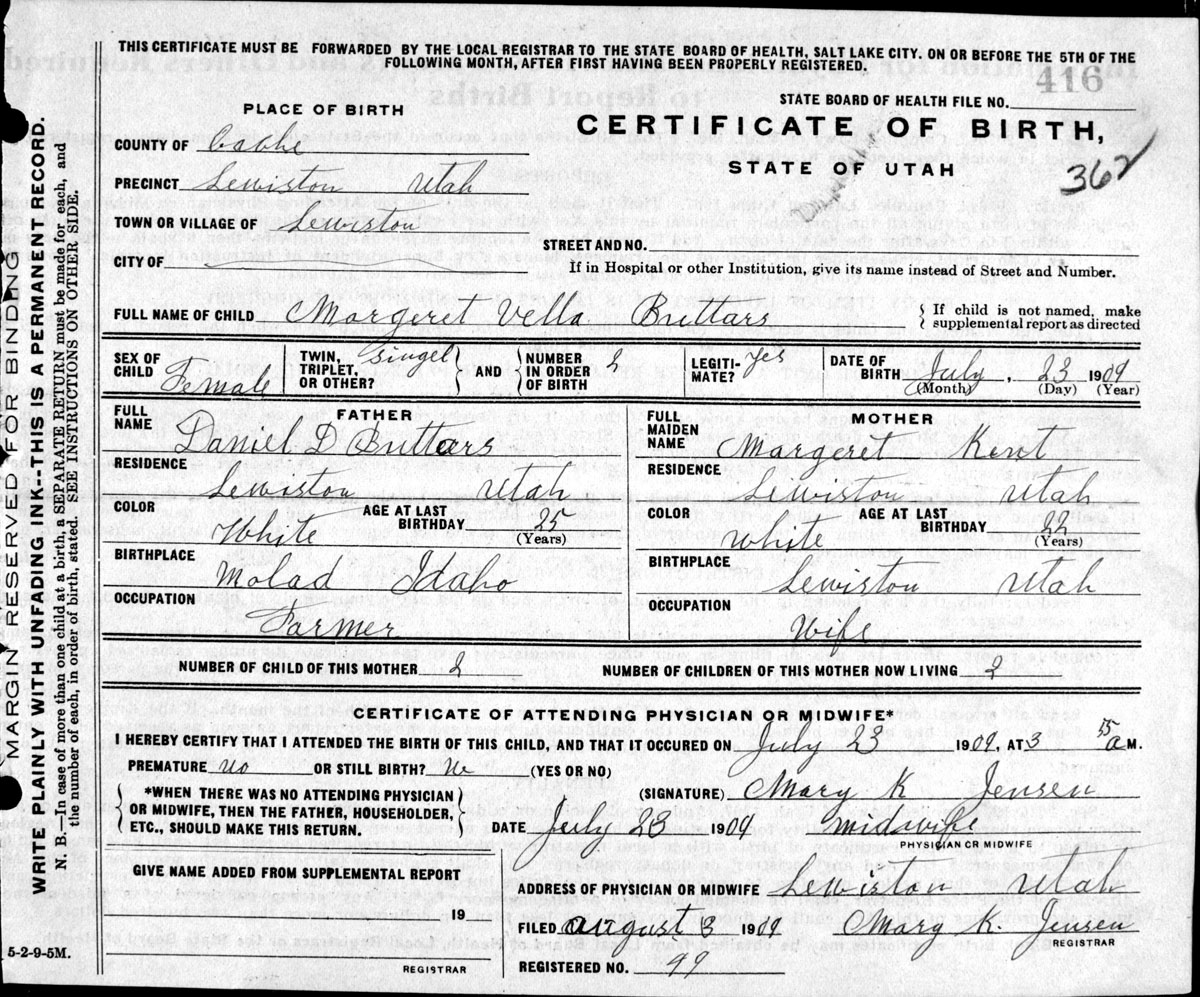 THIS CERTIFICATE MUST BE FORWARDED BY THE LOCAL REGISTRAR TO THE STATE BOARD OF HEALTH, SALT LAKE CITY. ON OR BEFORE THE 5TH OF THE
FOLLOWING MONTH, AFTER FIRST HAVING BEEN PROPERLY REGISTERED.
416
STATE BOARD OF HEALTH FILE NO.
PLACE OF BIRTH
CERTIFICATE OF BIRTH,
STATE OF UTAH
362
COUNTY OF Cabhe
PRECINCT Lewiston Utah
TOWN OR VILLAGE OF Lewiston
STREET AND NO.
CITY OF
If in Hospital or other Institution, give its name instead of Street and Number.
FULL NAME OF CHILD Margeret Vella Buttars { If child is not named, make
supplemental report as directed
SEX OF CHILD Female
TWIN, TRIPLET, OR OTHER? Singel } AND { NUMBER IN ORDER OF BIRTH 2
LEGITIMATE? Yes
DATE OF BIRTH July, 23 1909
(Month) (Day) (Year)
FATHER
FULL NAME Daniel D Buttars
RESIDENCE
Lewiston Utah
COLOR White AGE AT LAST BIRTHDAY 25
(Years)
BIRTHPLACE
Molad Idaho
OCCUPATION
Farmer
MOTHER
FULL MAIDEN NAME Margeret Kent
RESIDENCE
Lewiston Utah
COLOR White AGE AT LAST BIRTHDAY 22
(Years)
BIRTHPLACE
Lewiston Utah
OCCUPATION
Wife
NUMBER OF CHILD OF THIS MOTHER 2 NUMBER OF CHILDREN OF THIS MOTHER NOW LIVING 2
CERTIFICATE OF ATTENDING PHYSICIAN OR MIDWIFE*
I HEREBY CERTIFY THAT I ATTENDED THE BIRTH OF THIS CHILD, AND THAT IT OCCURED ON July 23 1909, AT 3 15 a M.
PREMATURE No OR STILL BIRTH? No (YES OR NO)
{ *WHEN THERE WAS NO ATTENDING PHYSICIAN
OR MIDWIFE, THEN THE FATHER, HOUSEHOLDER,
ETC., SHOULD MAKE THIS RETURN. }
(SIGNATURE) Mary K Jensen
DATE July 23 1909 Midwife
PHYSICIAN OR MIDWIFE
GIVE NAME ADDED FROM SUPPLEMENTAL REPORT
19
REGISTRAR
ADDRESS OF PHYSICIAN OR MIDWIFE Lewiston Utah
FILED August 3 1909 Mary K. Jensen
REGISTRAR
REGISTERED NO. 99
MARGIN RESERVED FOR BINDING
WRITE PLAINLY WITH UNFADING INK--THIS IS A PERMANENT RECORD.
N. B.—In case of more than one child at a birth, a SEPARATE RETURN must be made for each, and
the number of each, in order of birth, stated. SEE INSTRUCTIONS ON OTHER SIDE.
5-2-9-5M.